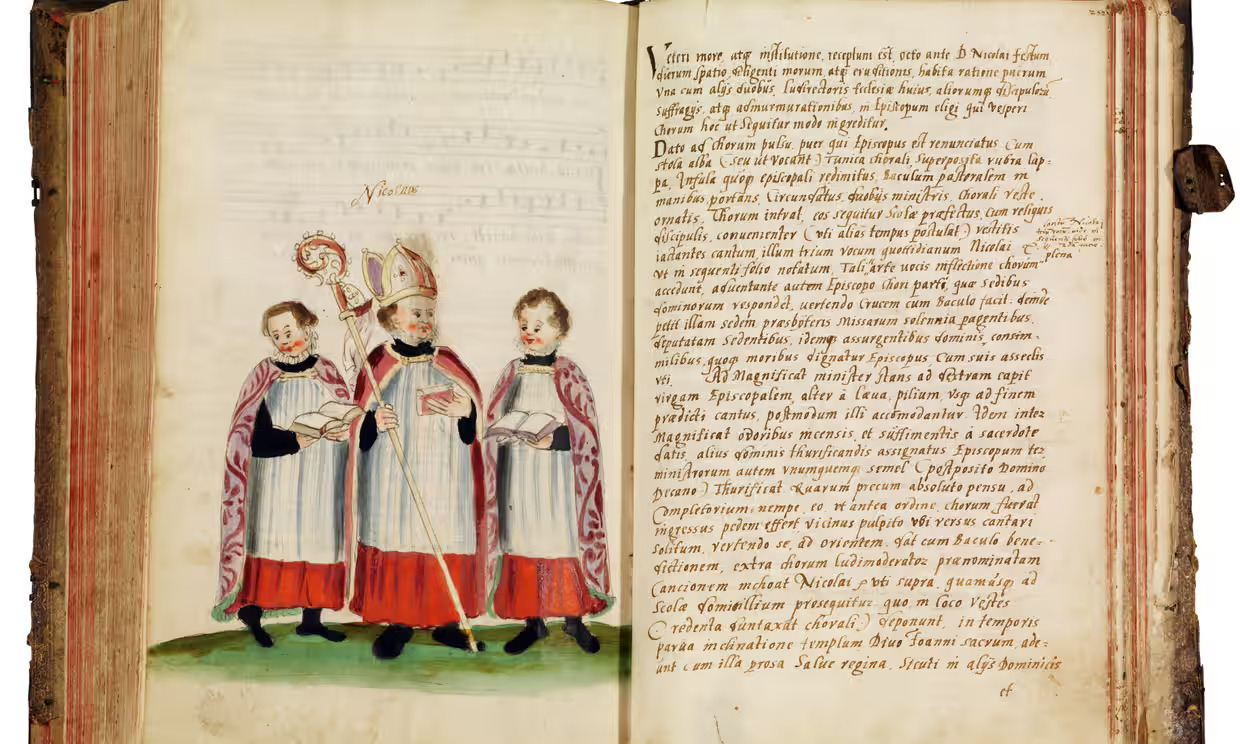 Nicolaus
Veteri more, atq; institutione, receptum est, octo ante D Nicolai festum
dierum spatio, diligenti morum, atq; eruditionis, habita ratione puerum
vna cum alijs duobus, Ludirectoris Ecclesiæ huius, aliorumq; discipulorū
suffragijs, atq; admurmurationibus, in Episcopum eligi qui vesperi
Chorum hoc ut sequitur modo ingreditur.
Dato ad chorum pulsu, puer qui Episcopus est renunciatus, Cum
stola alba (seu ut vocant) tunica chorali, superposita rubra lap=
pa, Infula quoq; episcopali redimitus, Baculum pastoralem in
manibus portans, Circundatus duobus ministris, Chorali veste
ornatis, Chorum intrat, eos sequitur Scolæ præfectus, cum reliquis
discipulis, convenienter (vti alias tempus postulat) vestitis
iactantes cantum, illum trium vocum quottidianum Nicolai
vt in sequenti folio notatum, Tali arte vocis inflectione chorum
accedunt, adventante autem Episcopo Chori parti, quæ sedibus
dominorum respondet, vertendo Crucem cum Baculo facit: deinde
petit illam sedem præsbyteris Missarum solennia pagentibus,
deputatam sedentibus, idemq; assurgentibus dominis, consim=
milibus, quoq; moribus dignatur Episcopus Cum suis asseclis
vti. Ad Magnificat minister stans ad dextram capit
virgam Episcopalem, alter à læua, pilium, vsq; ad finem
prædicti cantus, postmodum illi accomodantur. Idem inter
Magnificat odoribus incensis, et suffimentis à sacerdote
datis, alius dominis thurificandis assignatus Episcopum ter
ministrorum autem vnumquemq; semel (postposito Domino
Decano) Thurificat. Quarum precum absoluto pensu, ad
Completorium nempe, eo vt antea ordine, chorum fuerat
ingressus pedem effert vicinus pulpito vbi versus cantari
solitum, vertendo se, ad orientem, dat cum Baculo bene=
dictionem, extra chorum Ludimoderator prænominatam
Cancionem inchoat Nicolai vti supra, quamusq; ad
Scolæ domicillium prosequitur, quo in loco Vestes
(Redenta duntaxat chorali) deponunt, in temporis
parua inclinatione templum Diuo Joanni sacrum, ade=
unt cum illa prosa Salue regina, Sicuti in alijs Dominicis
et
plena